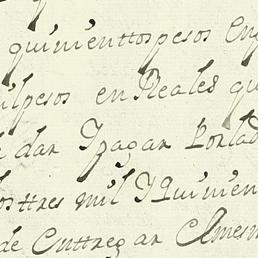 quinienttos pesos En
mil pesos en Reales qu
dar Y pagar Por lad
los ttres mil Y Quinien
de Enttregar El mesm